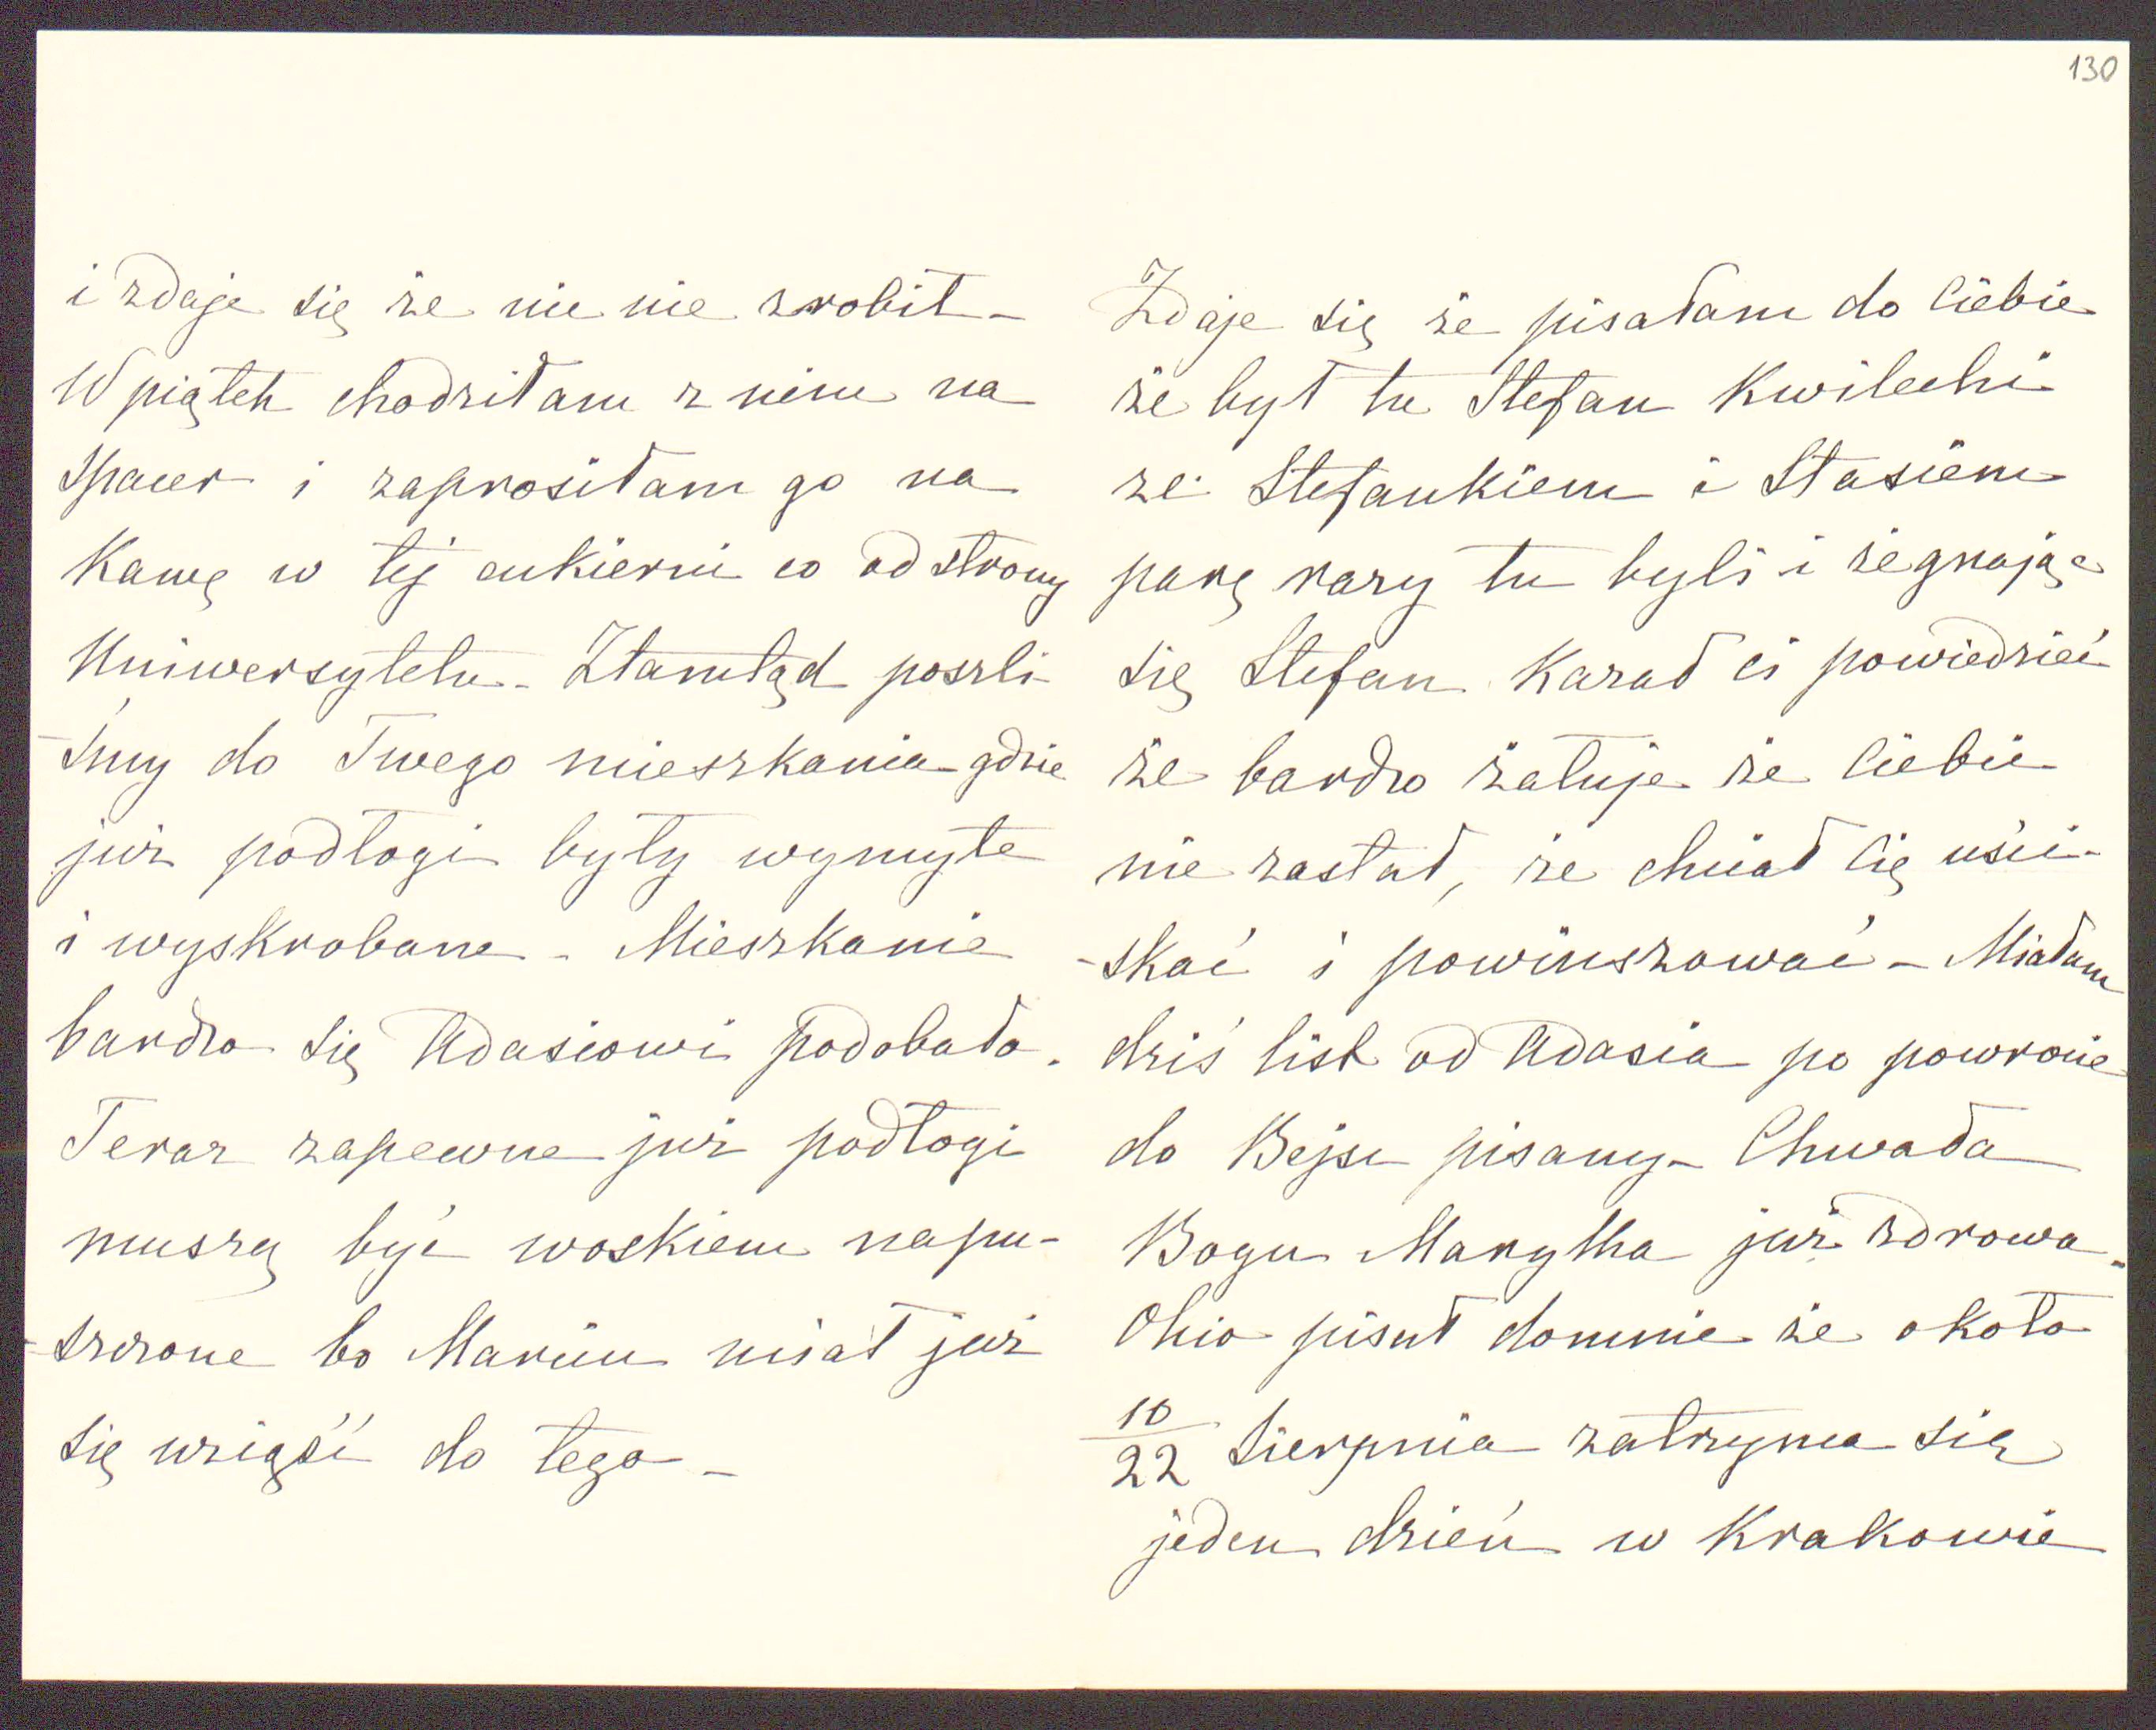 130
i zdaje się że nic nie zrobił –
W piątek chodziłam z nim na
spacer i zaprosiłam go na
Kawę w tej cukierni co od strony
Uniwersytetu – Ztamtąd poszli
-śmy do Twego mieszkania gdzie
już podłogi były wymyte
i wyskrobane – Mieszkanie
bardzo się Adasiowi podobało.
Teraz zapewne już podłogi
muszą być woskiem napu-
-szczone bo Marcin miał już
się wziąść do tego –
Zdaje się że pisałam do Ciebie
że był tu Stefan Kwilecki
ze Stefankiem i Stasiem
parę razy tu byli i żegnając
się Stefan Kazał ci powiedzieć
że bardzo żałuje że Ciebie
nie zastał, że chciał Cię uści-
-skać i powinszować – Miałam
dziś list od Adasia po powrocie
do Bejsc pisany – Chwała
Bogu Marylka już zdrowa.
Ohio pisał domnie że około
10/22 Sierpnia zatrzyma się
jeden dzień w Krakowie